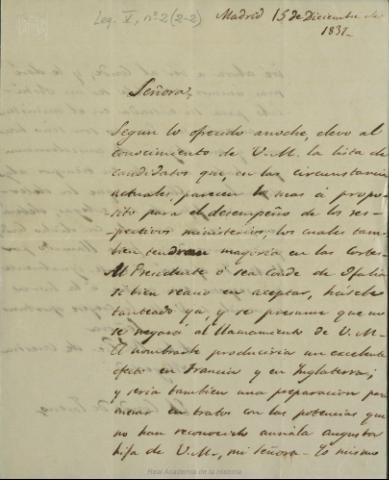 Leg. X, nº 2 (2-2)
Madrid 15 de Diciembre de
1837-
Señora,
Segun lo ofrecido anoche, elevo al
conocimiento de V.M. la lista de
candidatos que, en las circunstancias
actuales, parecen lo mas á propo-
sito para el desempeño de los res-
pectivos ministerios; los cuales tam-
bien tendran mayoria en las cortes-
Al Presidente ó sea Conde de Ofalia
si bien reacio en aceptar, hásele
tanteado ya, y se presume que no
se negará al llamamiento de V.M-
El nombrarle produciria un excelente
efecto en Francia y en Inglaterra;
y seria tambien una preparacion para
entrar en tratos con las potencias que
no han reconocido aun á la augusta
hija de V.M., mi Señora- Es mismo
Real Academia de la Historia